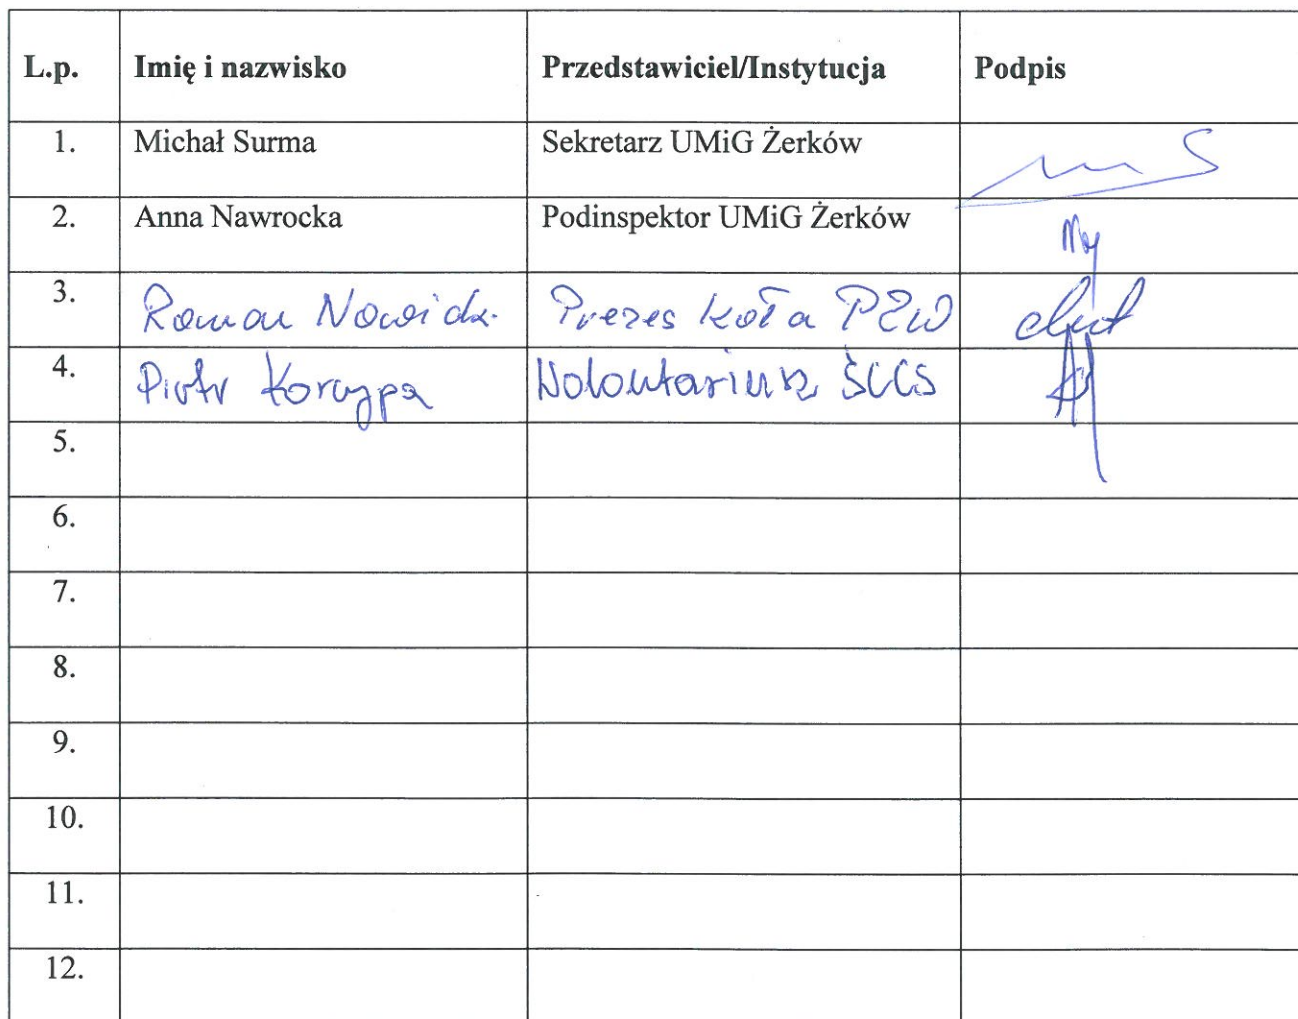 L.p. Imię i nazwisko Przedstawiciel/Instytucja Podpis
1. Michał Surma Sekretarz UMiG Żerków
2. Anna Nawrocka Podinspektor UMiG Żerków
3. Roman Prezes Koła PZW
4. Piotr Korcypa Wolontariusz ŚCCS
5.
6.
7.
8.
9.
10.
11.
12.